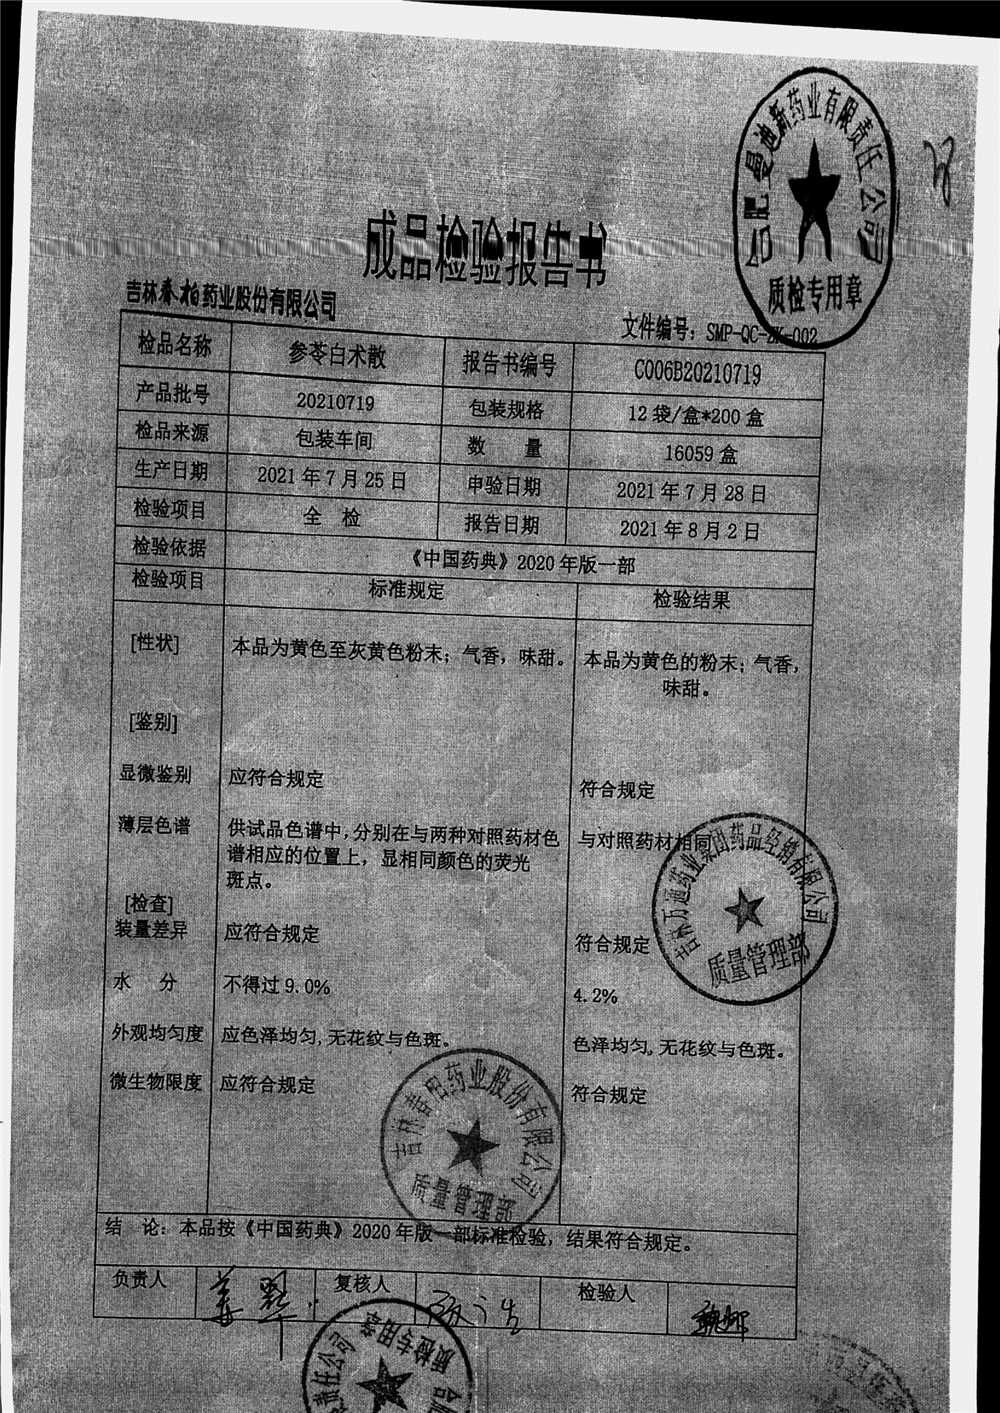 合肥曼迪新药业有限责任公司
质检专用章
成品检验报告书
吉林春柏药业股份有限公司
文件编号：SMP-QC-ZK-002
检品名称 参苓白术散 报告书编号 C006B20210719
产品批号 20210719 包装规格 12袋/盒*200盒
检品来源 包装车间 数 量 16059盒
生产日期 2021年7月25日 申验日期 2021年7月28日
检验项目 全 检 报告日期 2021年8月2日
检验依据 《中国药典》2020年版一部
检验项目 标准规定 检验结果
[性状] 本品为黄色至灰黄色粉末；气香，味甜。 本品为黄色的粉末；气香，
味甜。
[鉴别]
显微鉴别 应符合规定 符合规定
薄层色谱 供试品色谱中,分别在与两种对照药材色 与对照药材相同
谱相应的位置上，显相同颜色的荧光
斑点。
[检查]
装量差异 应符合规定 符合规定
水 分 不得过9.0% 4.2%
外观均匀度 应色泽均匀,无花纹与色斑。 色泽均匀,无花纹与色斑。
微生物限度 应符合规定 符合规定
吉林万通药业集团药品经销有限公司
质量管理部
药业股份有限公司
质量管理部
结 论：本品按《中国药典》2020年版一部标准检验，结果符合规定。
负责人 复核人 检验人
责任公司
质检专用章